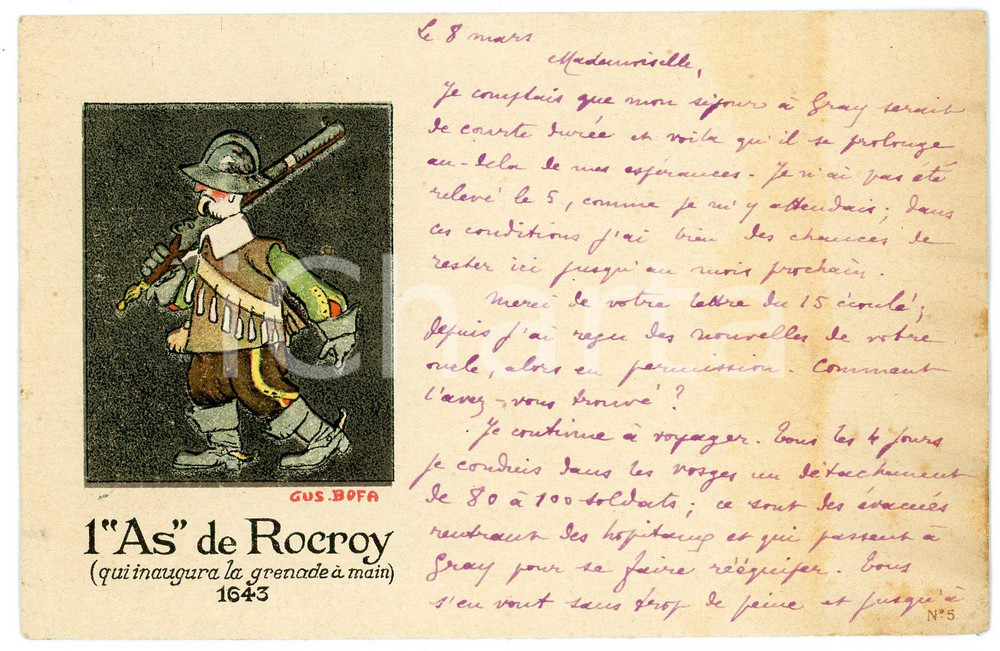 Le 8 mars
Mademoiselle,
Je comptais que mon séjour à Gray serait
de courte durée et voila qu'il se prolonge
au-delà de mes espérances. Je n'ai pas été
relevé le 5, comme je m'y attendais ; dans
ces conditions j'ai bien des chances de
rester ici jusqu'au mois prochain.
Merci de votre lettre du 15 écoulé ;
depuis j'ai reçu des nouvelles de votre
oncle, alors en permission. Comment
l'avez-vous trouvé ?
Je continue à voyager. Tous les 4 jours
je conduis dans les Vosges un détachement
de 80 à 100 soldats ; ce sont des évacués
rentrant des hopitaux et qui passent à
Gray pour se faire rééquiper. Tous
s'en vont sans trop de peine et jusqu'à
N°5
GUS. BOFA
1"As" de Rocroy
(qui inaugura la grenade à main)
1643
icharta